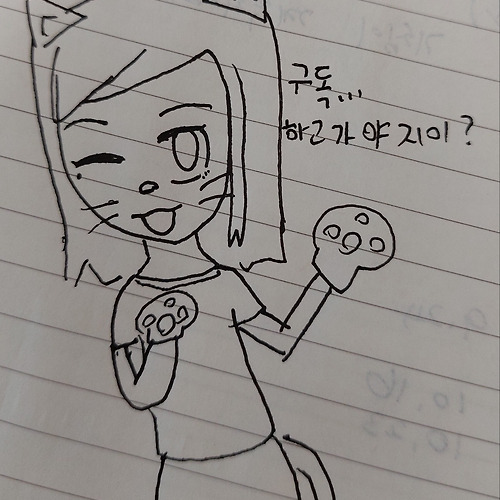 구독...
하고가야지이?